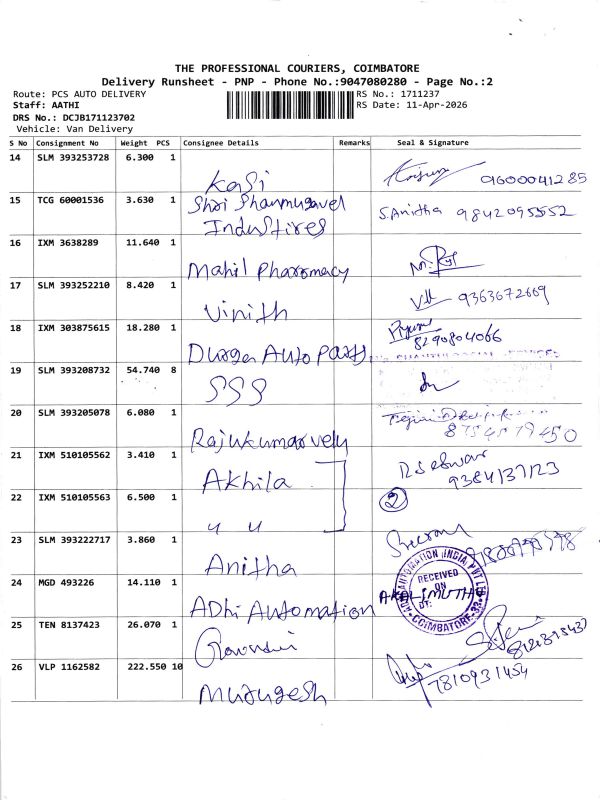 THE PROFESSIONAL COURIERS, COIMBATORE
Delivery Runsheet - PNP - Phone No.:9047080280 - Page No.:2
Route: PCS AUTO DELIVERY
RS No.: 1711237
Staff: AATHI
RS Date: 11-Apr-2026
DRS No.: DCJB171123702
Vehicle: Van Delivery
S No Consignment No Weight PCS Consignee Details Remarks Seal & Signature
14 SLM 393253728 6.300 1
Kasi 9600041285
15 TCG 60001536 3.630 1
Shri Shanmugavel S.Anitha 9842095552
Industires
16 IXM 3638289 11.640 1
Mahil Pharomacy
17 SLM 393252210 8.420 1
Vinith 9363672669
18 IXM 303875615 18.280 1
8290804066
Durga Auto Parts
19 SLM 393208732 54.740 8
SSS
20 SLM 393205078 6.080 1
Rajukumarvely
21 IXM 510105562 3.410 1
Akhila 9384137123
22 IXM 510105563 6.500 1
2
ч ч
23 SLM 393222717 3.860 1
Anitha
24 MGD 493226 14.110 1
RECEIVED
ON
DT:
AKALIMUTHU
COIMBATORE-33
ADhi Automation
25 TEN 8137423 26.070 1
Gowndri
26 VLP 1162582 222.550 10
7810931454
Murugesh